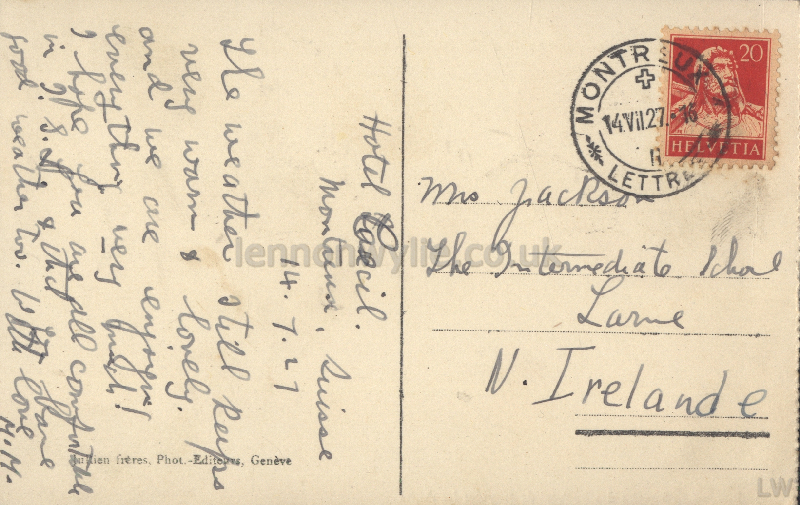 Hotel Cecil.
Montreux, Suisse
14.7.27
The weather still keeps
very warm & lovely.
and we are enjoying
everything very much!
I hope you are all comfortable
in I. S. & that you have
good weather too. With love
M.M.
Jullien frères, Phot.-Editeurs, Genève
MONTREUX 1
14.VII.27.-16
LETTRE
20
HELVETIA
Mrs Jackson
The Intermediate School
Larne
N. Irelande
lennonwylie.co.uk
LW